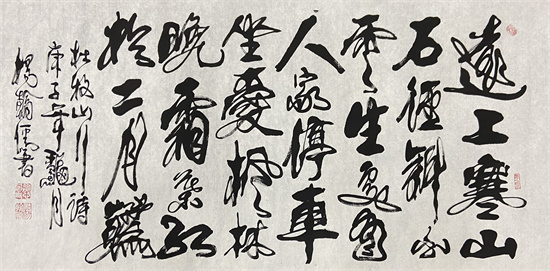 遠上寒山
石徑斜白
雲生處有
人家停車
坐愛楓林
晚霜葉紅
於二月花
杜牧山行詩
庚子年龝月
楊書